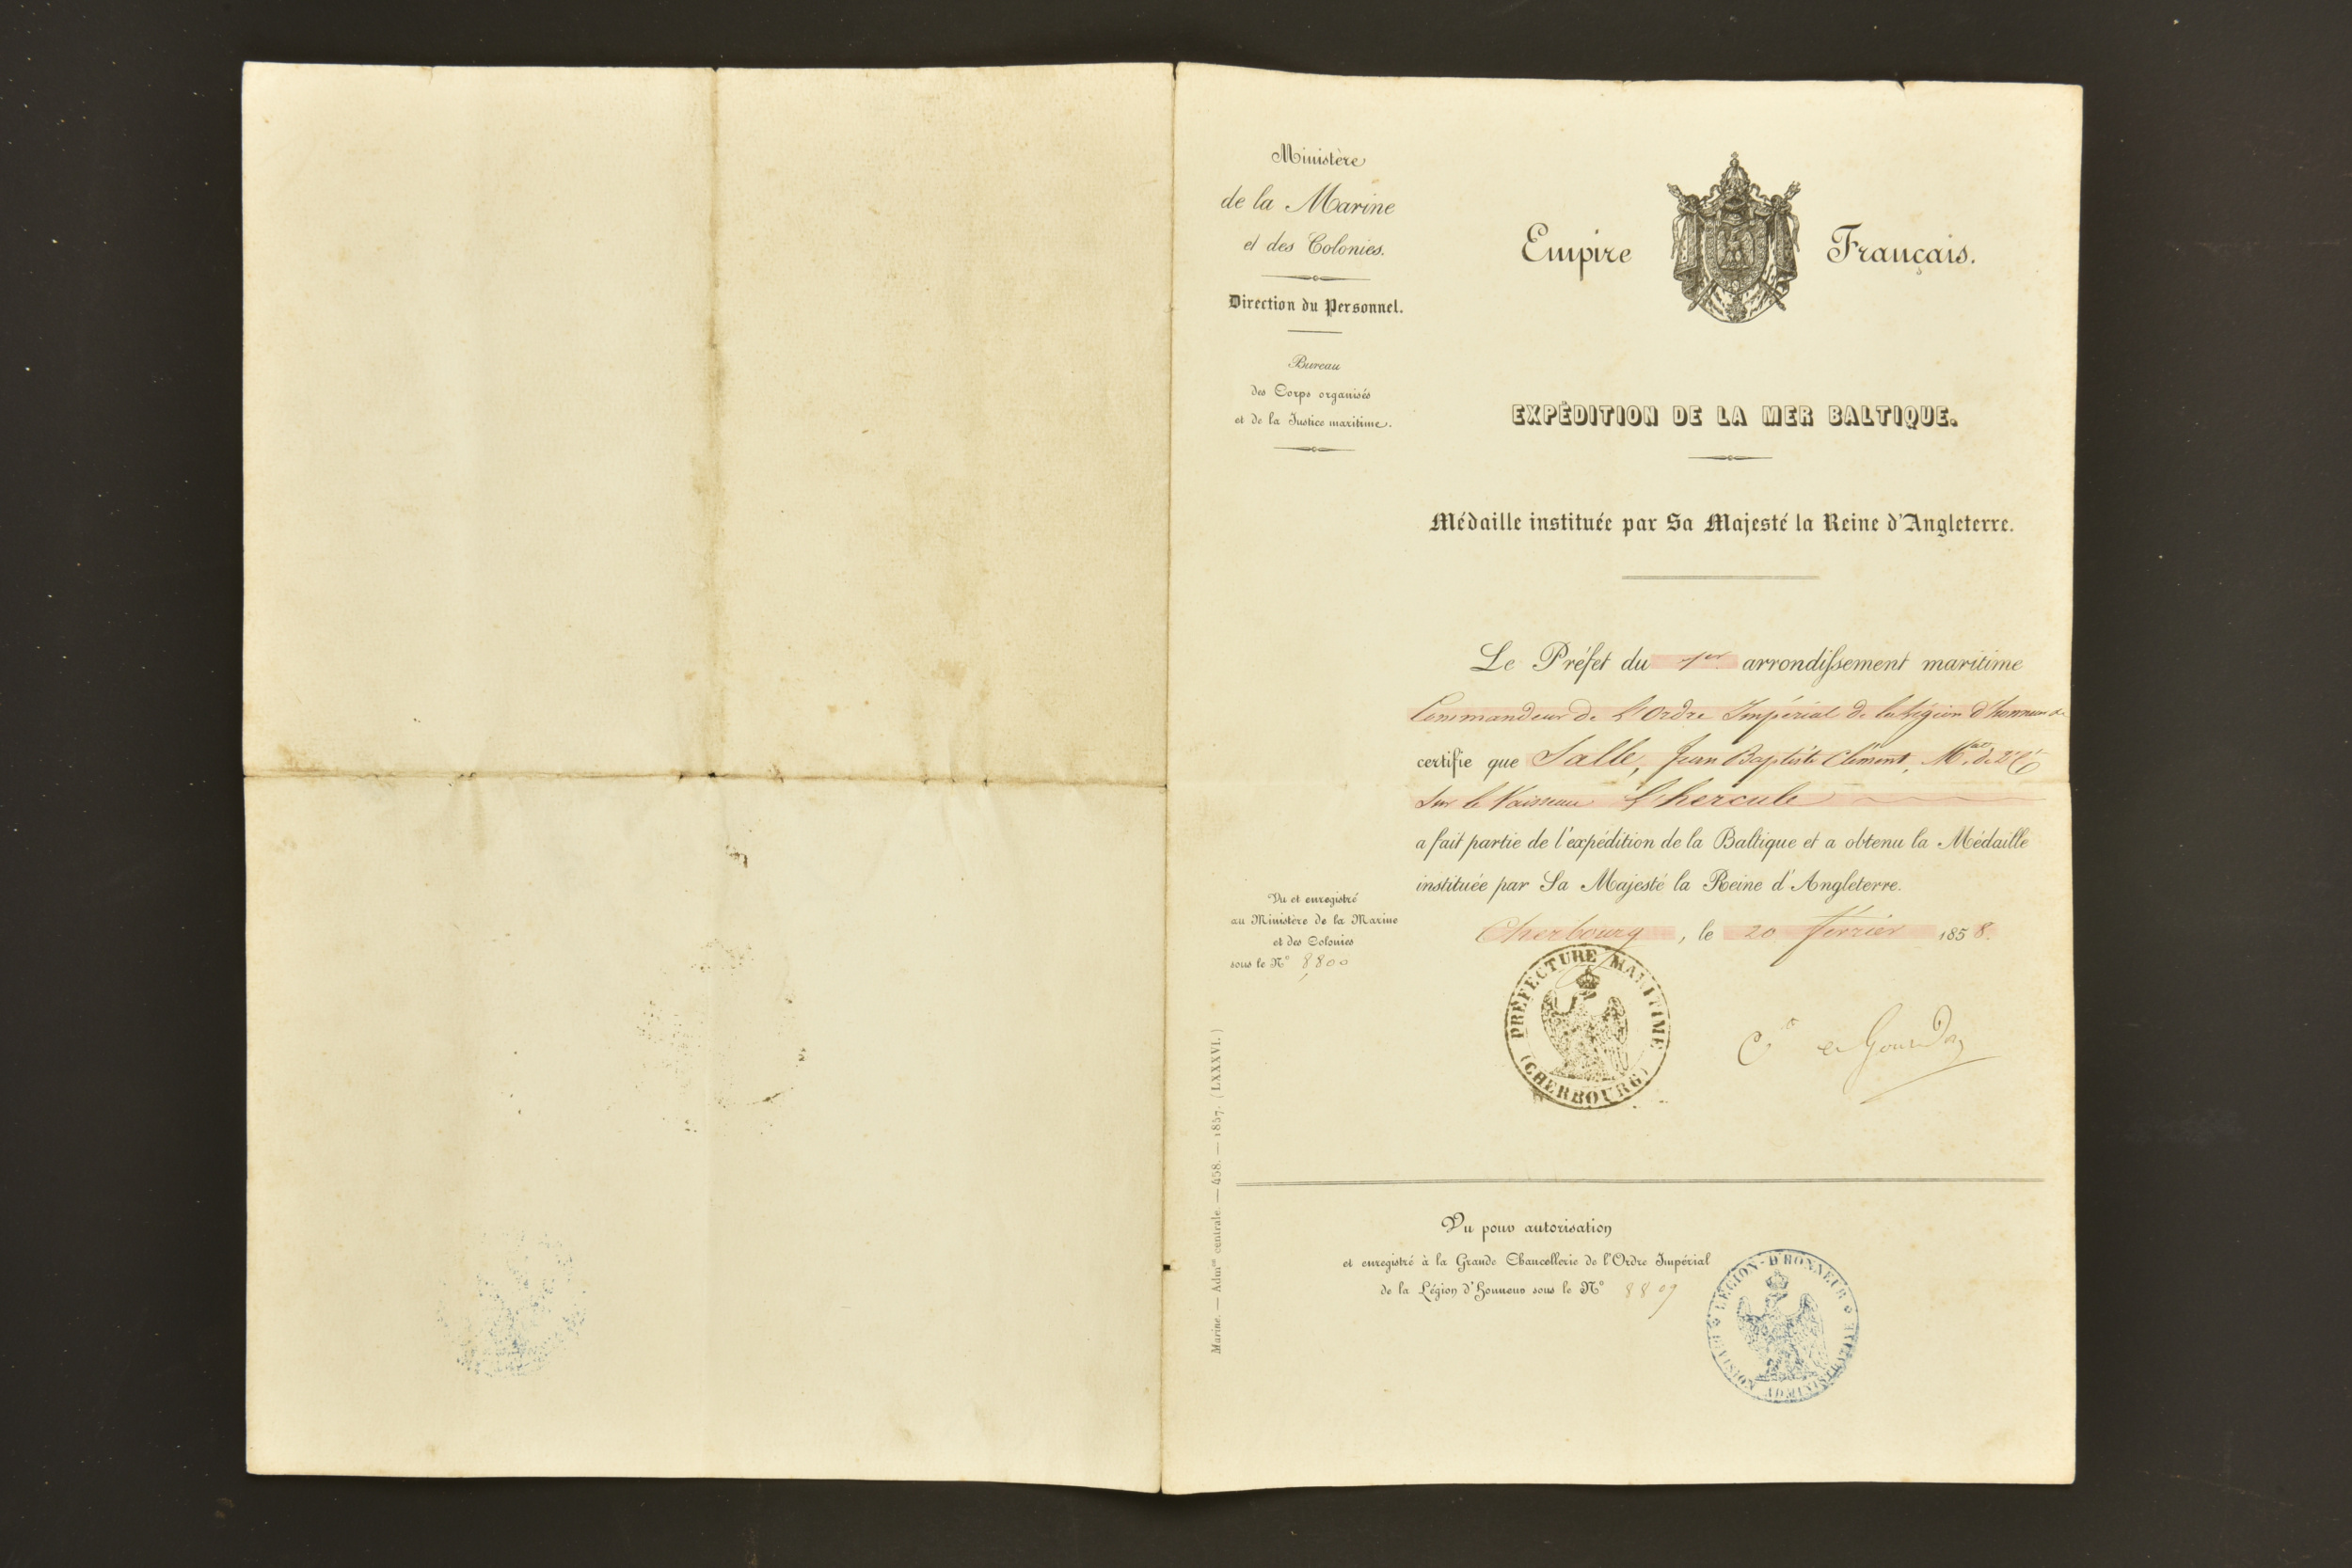 Ministère
de la Marine
et des Colonies.
Direction du Personnel.
Bureau
des Corps organisés
et de la Justice maritime.
Empire Français.
EXPÉDITION DE LA MER BALTIQUE.
Médaille instituée par Sa Majesté la Reine d'Angleterre.
Le Préfet du 1er arrondissement maritime
Commandeur de L'Ordre Impérial de la Légion d'honneur &
certifie que Salle, Jean Baptiste Clément, Mat. de 2e Cl
Sur le Vaisseau L'hercule
a fait partie de l'expédition de la Baltique et a obtenu la Médaille
instituée par Sa Majesté la Reine d'Angleterre.
Cherbourg, le 20 février 1858.
Vu et enregistré
au Ministère de la Marine
et des Colonies
sous le N° 8800
PRÉFECTURE MARITIME
(CHERBOURG)
Gourdon
Marine. — Adm.on centrale. — 458. — 1857. (LXXXVI.)
Vu pour autorisation
et enregistré à la Grande Chancellerie de l'Ordre Impérial
de la Légion d'Honneur sous le N° 8809
LÉGION-D'HONNEUR
DIVISION ADMINISTRATIVE